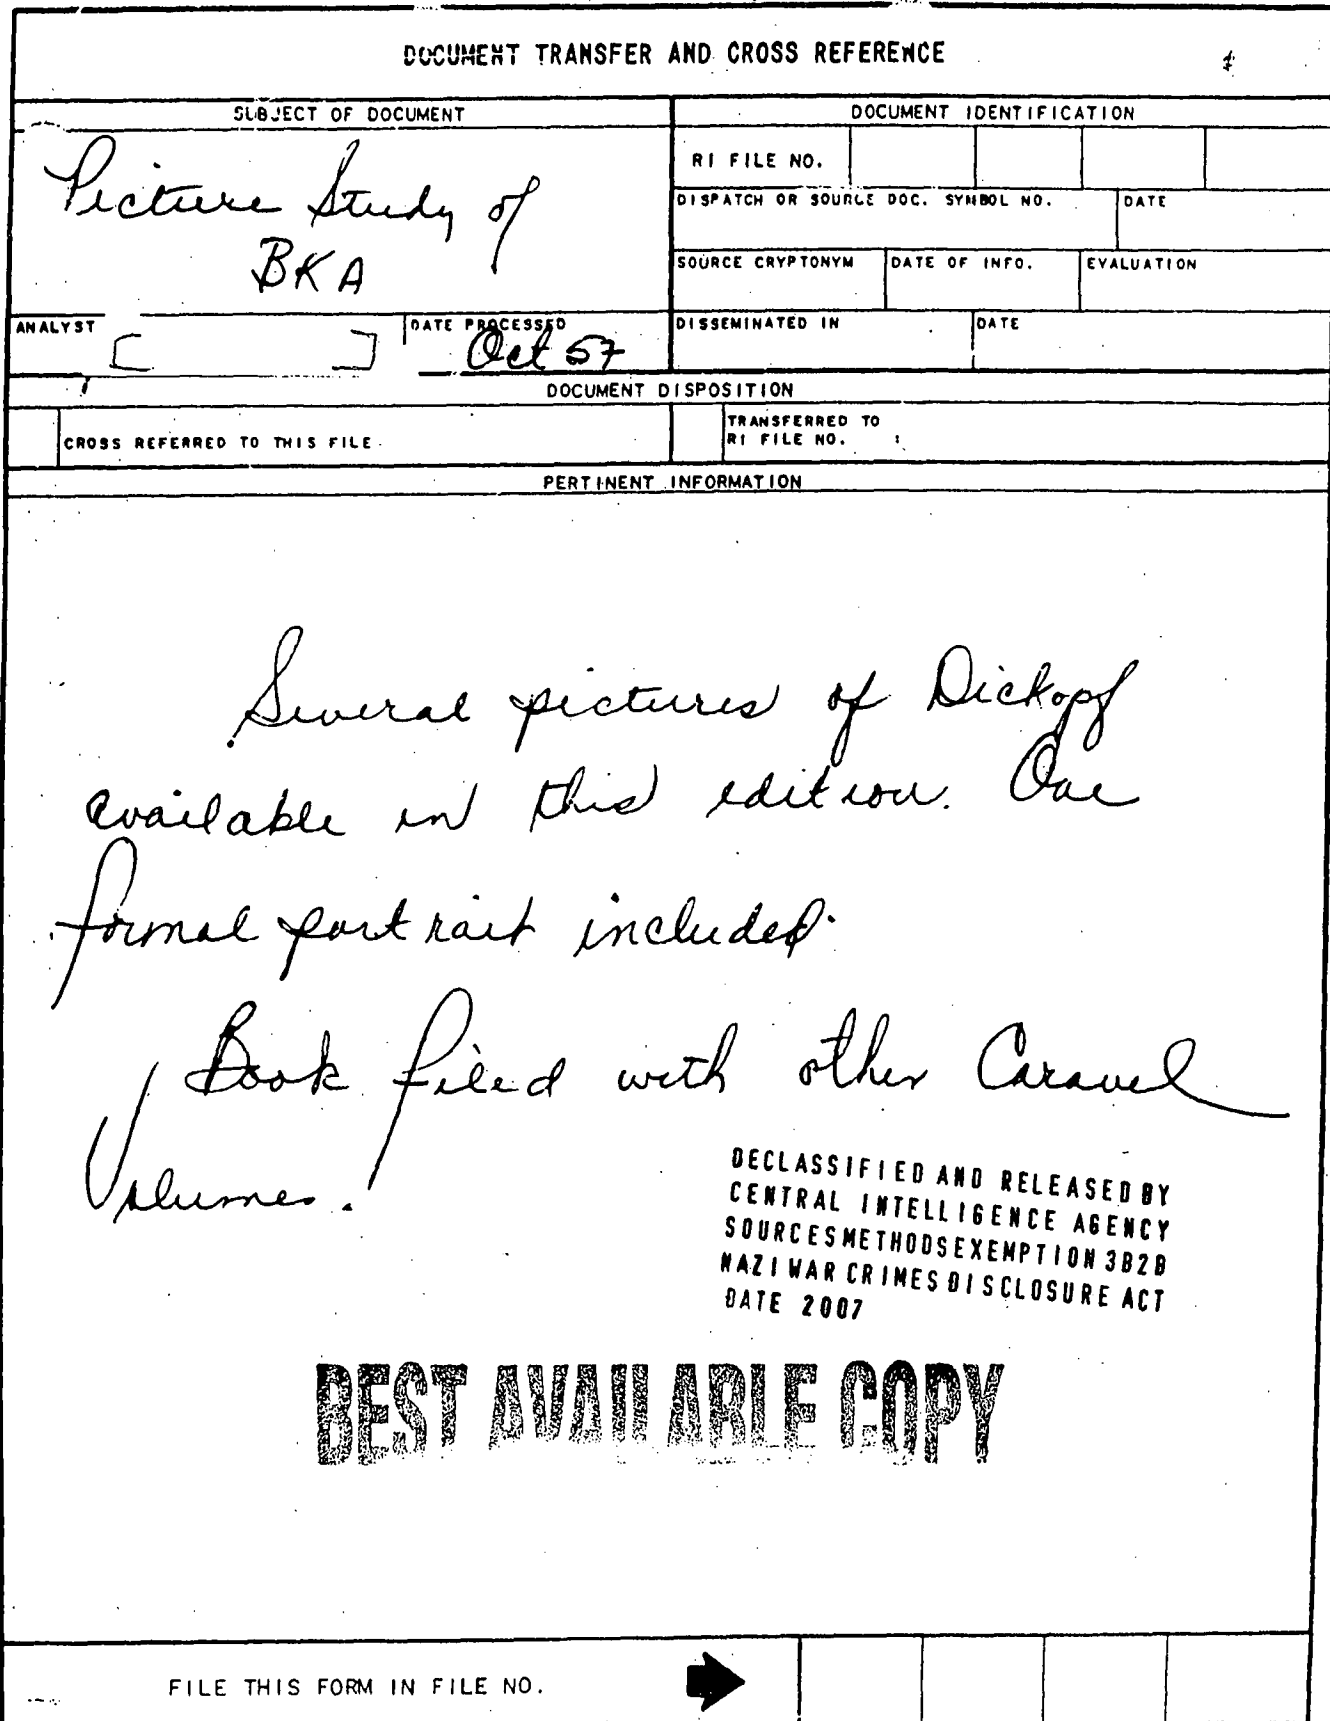 DOCUMENT TRANSFER AND CROSS REFERENCE
SUBJECT OF DOCUMENT
DOCUMENT IDENTIFICATION
Picture Study of
BKA
RI FILE NO.
DISPATCH OR SOURCE DOC. SYMBOL NO.
DATE
SOURCE CRYPTONYM
DATE OF INFO.
EVALUATION
ANALYST
DATE PROCESSED
Oct 57
DISSEMINATED IN
DATE
DOCUMENT DISPOSITION
CROSS REFERRED TO THIS FILE
TRANSFERRED TO
RI FILE NO.
PERTINENT INFORMATION
Several pictures of Dickopf
available in this edition. One
formal portrait included.
Book filed with other Caravel
Volumes.
DECLASSIFIED AND RELEASED BY
CENTRAL INTELLIGENCE AGENCY
SOURCESMETHODSEXEMPTION 3B2B
NAZI WAR CRIMES DISCLOSURE ACT
DATE 2007
BEST AVAILABLE COPY
FILE THIS FORM IN FILE NO.